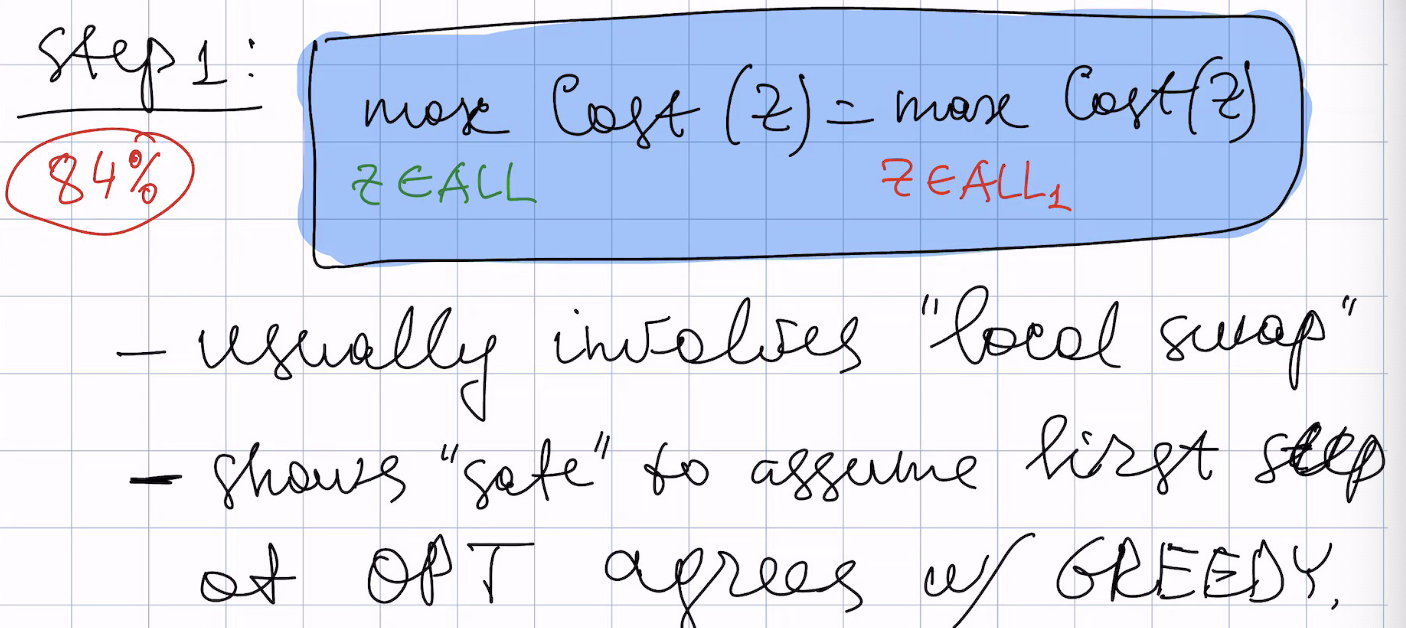 step 1:
84%
max Cost(Z) = max Cost(Z)
Z∈ALL Z∈ALL₁
- usually involves "local swap"
- shows "safe" to assume first step
of OPT agrees w/ GREEDY.